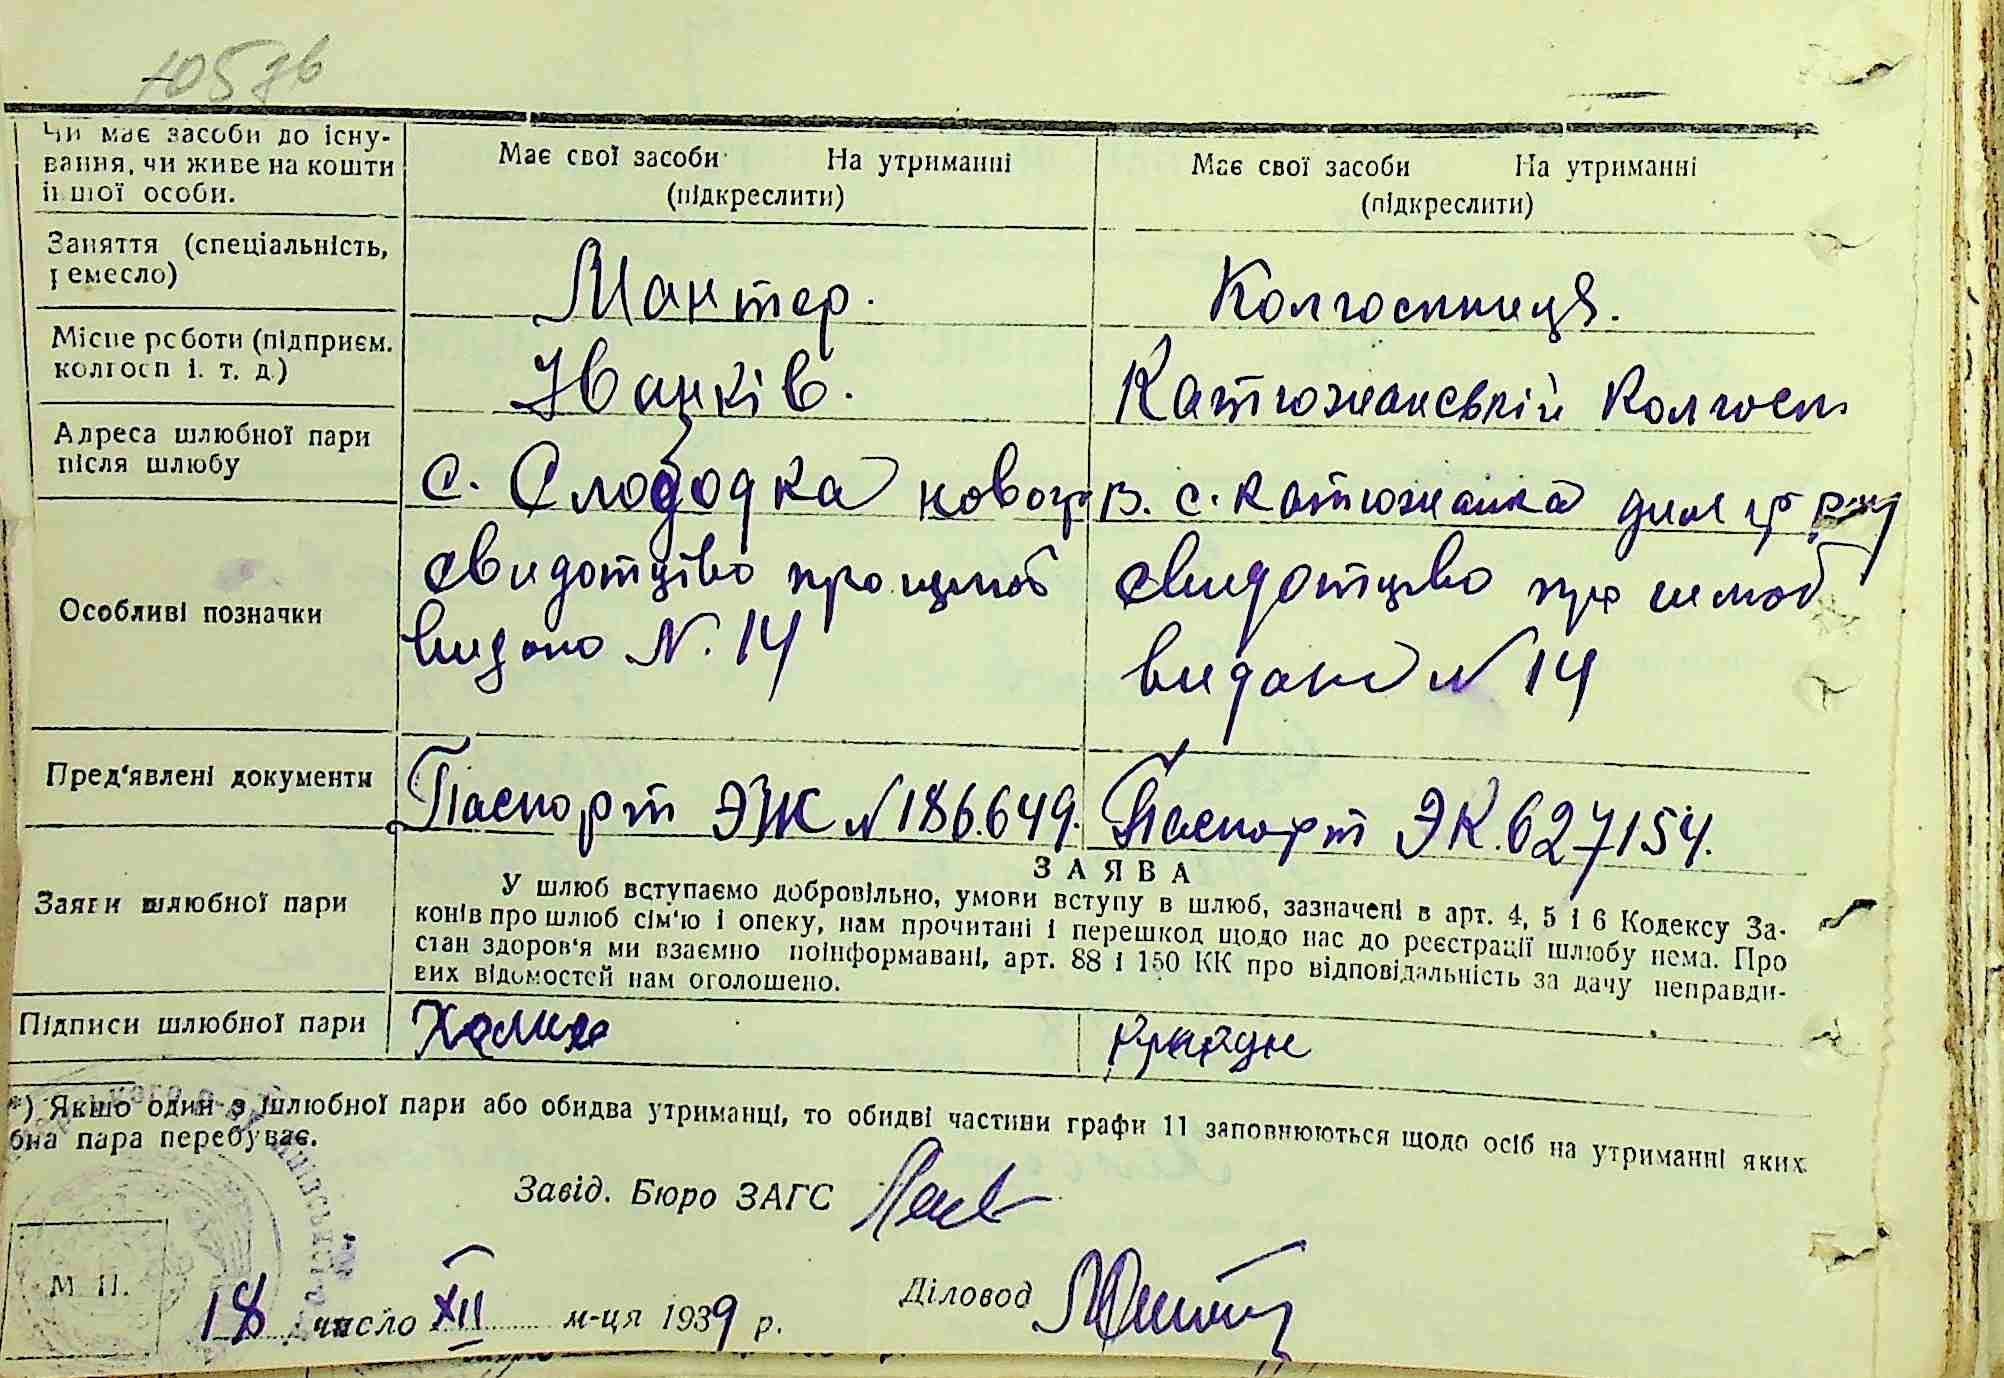 105 зв
Чи має засоби до існу-
вання, чи живе на кошти
іншої особи.
Має свої засоби На утриманні
(підкреслити)
Має свої засоби На утриманні
(підкреслити)
Заняття (спеціальність,
ремесло)
Мантер.
Колгоспниця.
Місце роботи (підприєм.
колгосп і. т. д.)
Іванків.
Катюжанський Колгосп
Адреса шлюбної пари
після шлюбу
с. Слободка новогр
в. с. Катюжанка
Особливі позначки
свидотцтво про шлюб
видано N. 14
свидотцтво про шлюб
видано N 14
Пред'явлені документи
Паспорт ЭЖ N 186.649.
Паспорт ЭК. 627154.
Заяви шлюбної пари
ЗАЯВА
У шлюб вступаємо добровільно, умови вступу в шлюб, зазначені в арт. 4, 5 і 6 Кодексу За-
конів про шлюб сім'ю і опеку, нам прочитані і перешкод щодо нас до реєстрації шлюбу нема. Про
стан здоров'я ми взаємно поінформавані, арт. 88 і 150 КК про відповідальність за дачу неправди-
вих відомостей нам оголошено.
Підписи шлюбної пари
*) Якшо один з шлюбної пари або обидва утриманці, то обидві частини графи 11 заповнюються щодо осіб на утриманні яких
бна пара перебуває.
Завід. Бюро ЗАГС
М П.
18 число XII м-ця 1939 р.
Діловод